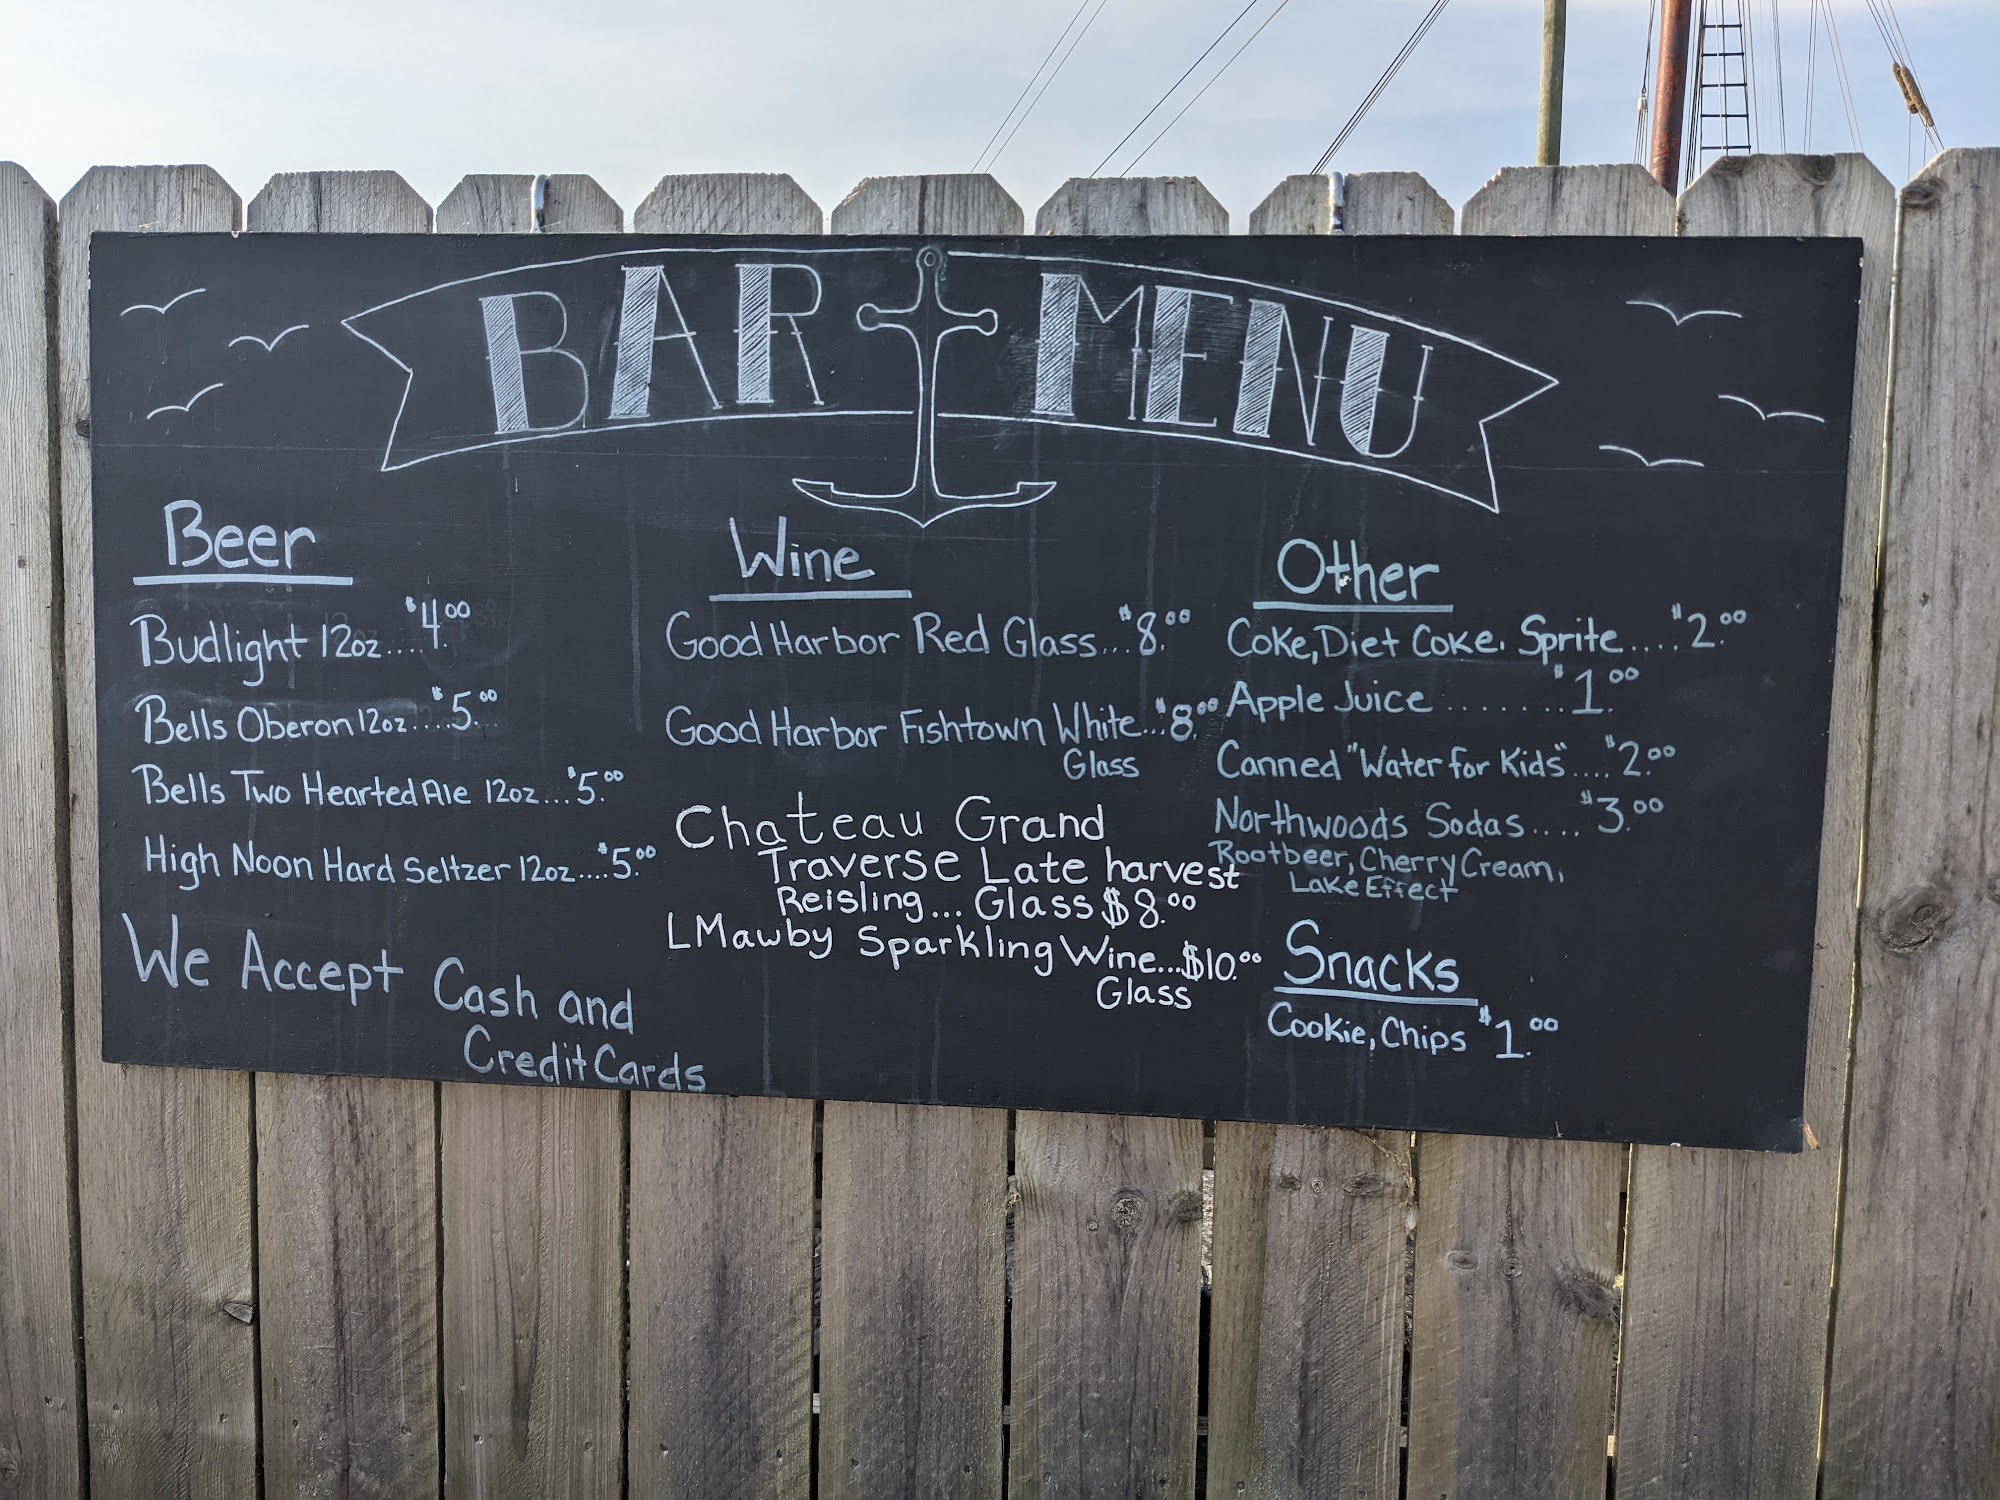 BAR MENU
Beer
Budlight 12oz....$4.00
Bells Oberon 12oz....$5.00
Bells Two Hearted Ale 12oz...$5.00
High Noon Hard Seltzer 12oz....$5.00
We Accept Cash and
Credit Cards
Wine
Good Harbor Red Glass...$8.00
Good Harbor Fishtown White...$8.00
Glass
Chateau Grand
Traverse Late harvest
Reisling... Glass $8.00
LMawby Sparkling Wine...$10.00
Glass
Other
Coke, Diet Coke. Sprite....$2.00
Apple Juice .......$1.00
Canned "Water for Kids"....$2.00
Northwoods Sodas....$3.00
Rootbeer, Cherry Cream,
Lake Effect
Snacks
Cookie, Chips $1.00